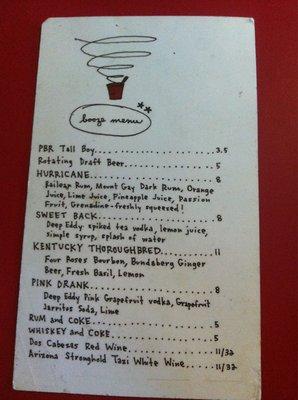 booze menu
PBR Tall Boy 3.5
Rotating Draft Beer 5
HURRICANE 8
Railean Rum, Mount Gay Dark Rum, Orange
Juice, Lime Juice, Pineapple Juice, Passion
Fruit, Grenadine - freshly squeezed!
SWEET BACK 8
Deep Eddy spiked tea vodka, lemon juice,
simple syrup, splash of water
KENTUCKY THOROUGHBRED 11
Four Roses Bourbon, Bundaberg Ginger
Beer, Fresh Basil, Lemon
PINK DRANK 8
Deep Eddy Pink Grapefruit vodka, Grapefruit
Jarritos Soda, Lime
RUM and COKE 5
WHISKEY and COKE 5
Dos Cabezas Red Wine 11/32
Arizona Stronghold Tazi White Wine 11/32